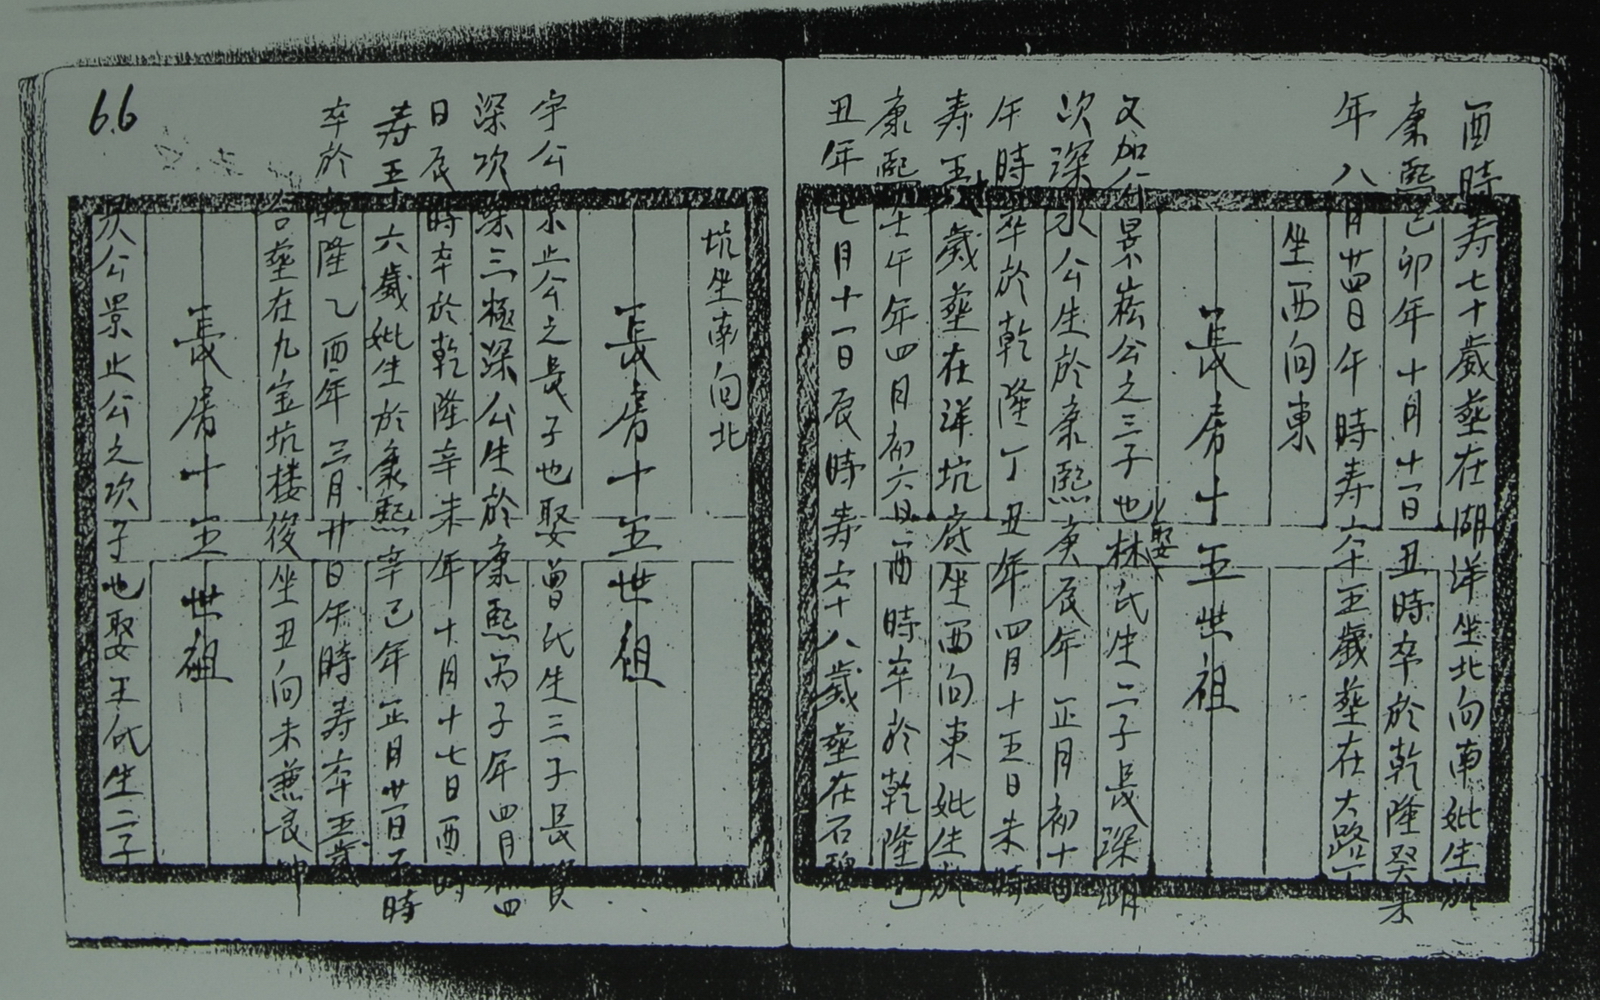 酉時寿七十歲葬在湖洋坐北向南妣生於
康熙己卯年十月廿一日丑時卒於乾隆癸未
年八月廿四日午時寿六十五歲葬在大路下
坐西向東
長房十五世祖
文加公景崧公之三子也娶林氏生二子長深明
次深水公生於康熙庚辰年正月初十日
午時卒於乾隆丁丑年四月十五日未時
寿五十八歲葬在洋坑底坐西向東妣生於
康熙壬午年四月初六日酉時卒於乾隆己
丑年七月十一日辰時寿六十八歲葬在石碧
坑坐南向北
長房十五世祖
宇公景止公之長子也娶曾氏生三子長賢
深次深三極深公生於康熙丙子年四月初四
日辰時卒於乾隆辛未年十月十七日酉時
寿五十六歲妣生於康熙辛巳年正月廿一日時
卒於乾隆乙酉年三月廿日午時寿六十五歲
合葬在九宝坑楼後坐丑向未兼艮坤
公景止公之次子也娶王氏生二子
長房十五世祖
66